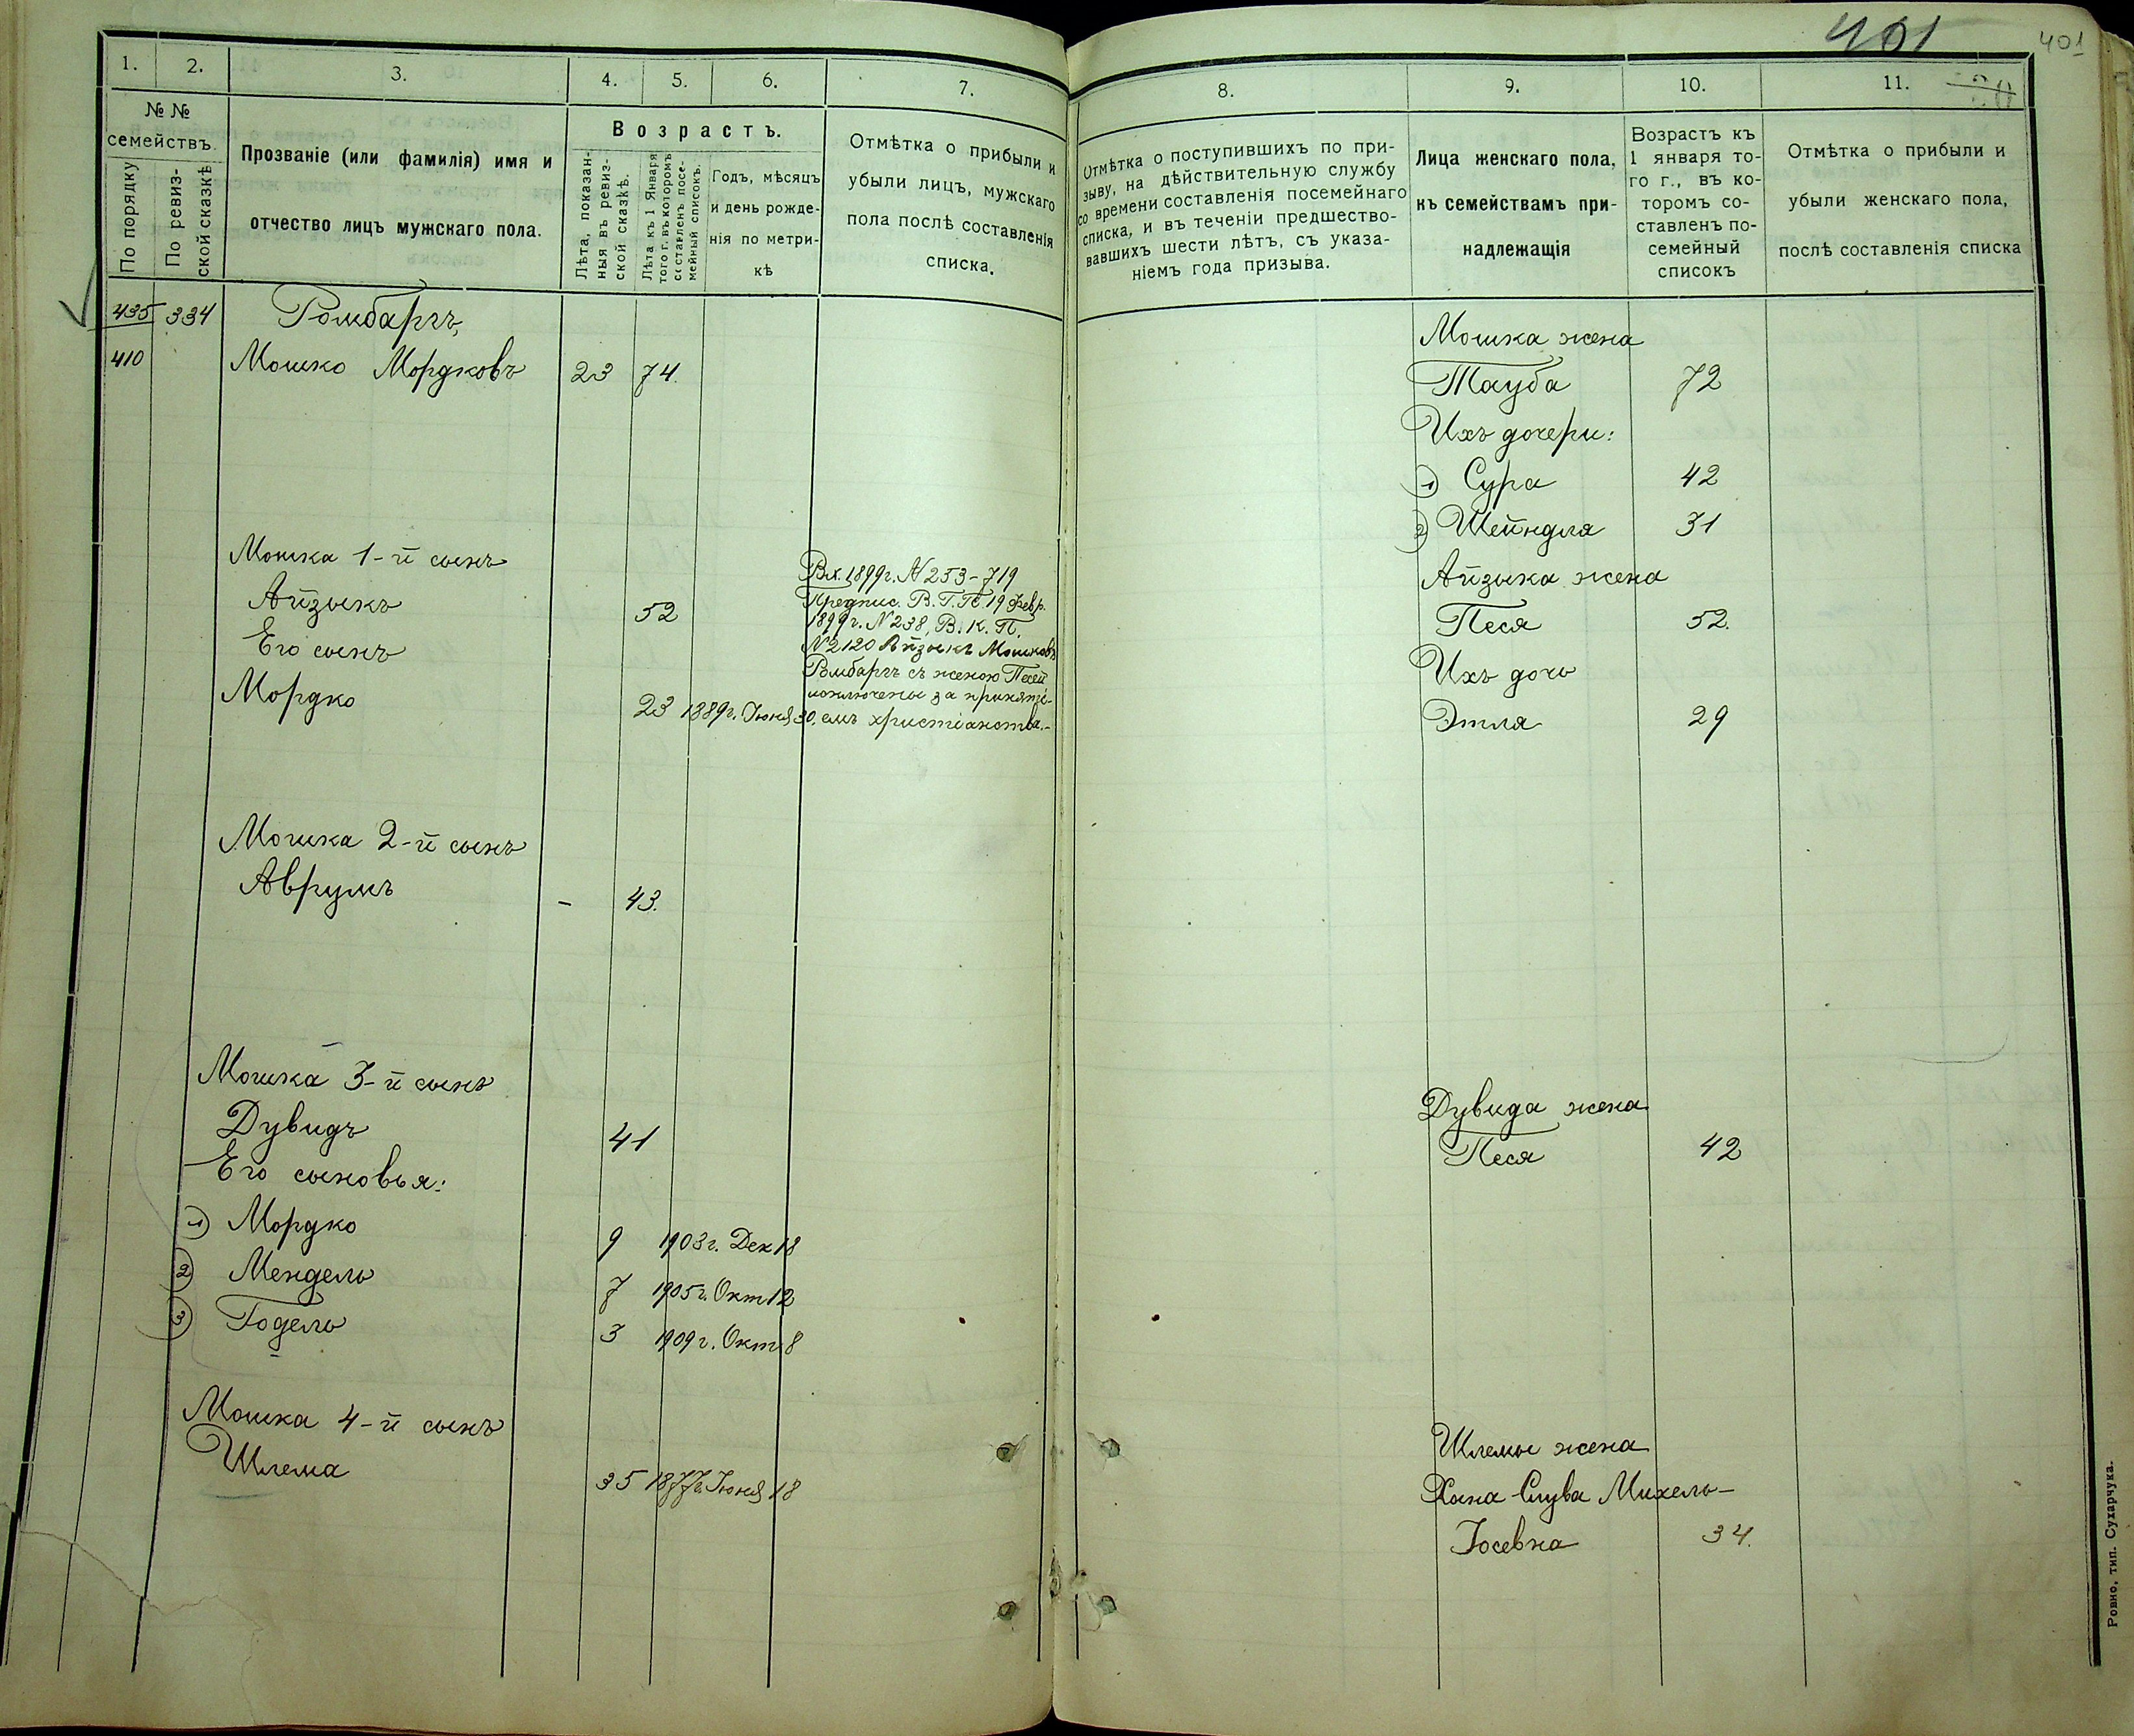 401
401
1.
2.
3.
4.
5.
6.
7.
№ №
семействъ.
По порядку
По ревиз-
ской сказкѣ
Прозваніе (или фамилія) имя и
отчество лицъ мужскаго пола.
Возрастъ.
Лѣта, показан-
ныя въ ревиз-
ской сказкѣ.
Лѣта къ 1 Января
того г. въ которомъ
составленъ посе-
мейный списокъ.
Годъ, мѣсяцъ
и день рожде-
нія по метри-
кѣ
Отмѣтка о прибыли и
убыли лицъ, мужскаго
пола послѣ составленія
списка.
435 334 Ромбаргъ,
410 Мошко Мордковъ 23 74.
Мошка 1-й сынъ
Айзыкъ 52
Его сынъ
Мордко 23 1889г. Іюня 30.
Вх. 1899г. № 253-719
Предпис. В. Г. П. 19 Февр.
1899г. № 238, В. К. П.
№ 2120 Айзыкъ Мошковъ
Ромбаргъ съ женою Песей
исключены за приняті-
емъ христіанства.-
Мошка 2-й сынъ
Аврумъ - 43.
Мошка 3-й сынъ
Дувидъ 41
Его сыновья:
1) Мордко 9 1903г. Дек 18
2) Мендель 7 1905г. Окт 12
3) Годель 3 1909г. Окт 8
Мошка 4-й сынъ
Шлема 35 1877г. Іюня 18
8.
9.
10.
11.
Отмѣтка о поступившихъ по при-
зыву, на дѣйствительную службу
со времени составленія посемейнаго
списка, и въ теченіи предшество-
вавшихъ шести лѣтъ, съ указа-
ніемъ года призыва.
Лица женскаго пола,
къ семействамъ при-
надлежащія
Возрастъ къ
1 января то-
го г., въ ко-
торомъ со-
ставленъ по-
семейный
списокъ
Отмѣтка о прибыли и
убыли женскаго пола,
послѣ составленія списка
Мошка жена
Тауба 72
Ихъ дочери:
1) Сура 42
2) Шейндля 31
Айзыка жена
Песя 52.
Ихъ дочь
Этля 29
Дувида жена
Песя 42
Шлемы жена
Хана-Слува Михель-
Іосевна 34.
Ровно, тип. Сухарчука.